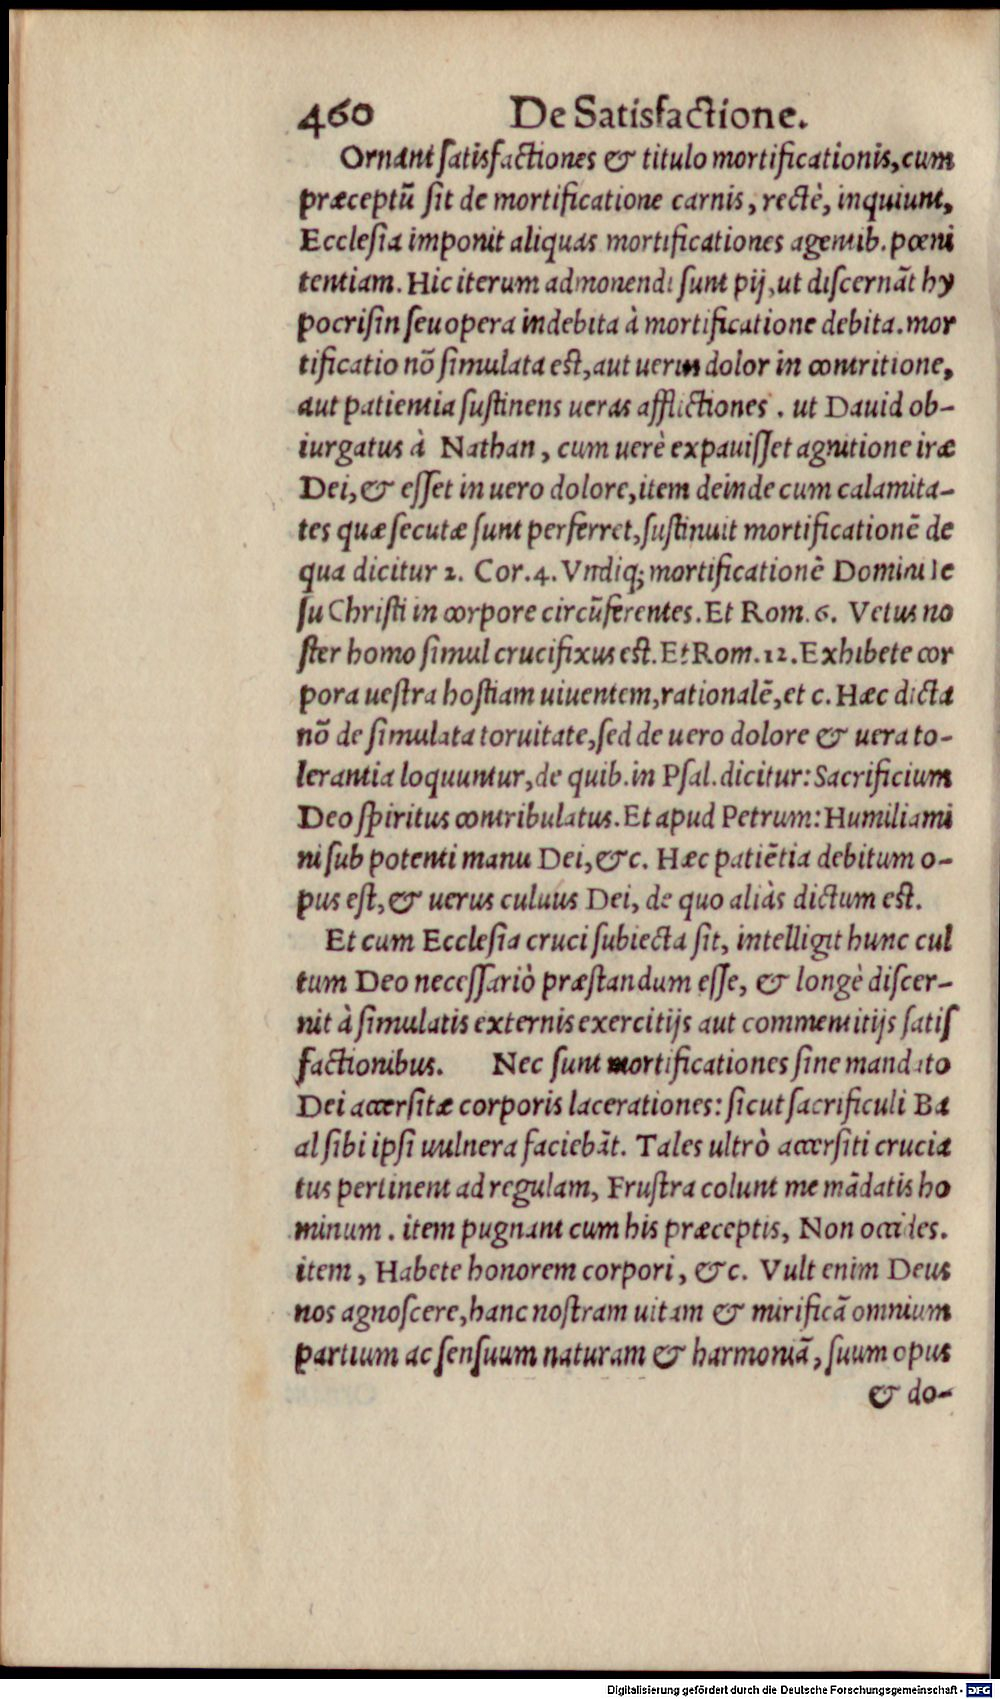 460 De Satisfactione.
Ornant satisfactiones & titulo mortificationis, cum
præceptū sit de mortificatione carnis, rectè, inquiunt,
Ecclesia imponit aliquas mortificationes agentib. pœni
tentiam. Hic iterum admonendi sunt pij, ut discernāt hy
pocrisin seu opera indebita à mortificatione debita. mor
tificatio nō simulata est, aut uerus dolor in contritione,
aut patientia sustinens ueras afflictiones. ut Dauid ob-
iurgatus à Nathan, cum uerè expauisset agnitione iræ
Dei, & esset in uero dolore, item deinde cum calamita-
tes quæ secutæ sunt perferret, sustinuit mortificationē de
qua dicitur 2. Cor. 4. Vndiq; mortificationē Domini Ie
su Christi in corpore circūferentes. Et Rom. 6. Vetus no
ster homo simul crucifixus est. Et Rom. 12. Exhibete cor
pora uestra hostiam uiuentem, rationalē, et c. Hæc dicta
nō de simulata toruitate, sed de uero dolore & uera to-
lerantia loquuntur, de quib. in Psal. dicitur: Sacrificium
Deo spiritus contribulatus. Et apud Petrum: Humiliami
ni sub potenti manu Dei, &c. Hæc patiētia debitum o-
pus est, & uerus cultus Dei, de quo aliàs dictum est.
Et cum Ecclesia cruci subiecta sit, intelligit hunc cul
tum Deo necessariò præstandum esse, & longè discer-
nit à simulatis externis exercitijs aut commentitijs satis
factionibus. Nec sunt mortificationes sine mandato
Dei accersitæ corporis lacerationes: sicut sacrificuli Ba
al sibi ipsi uulnera faciebāt. Tales ultrò accersiti crucia
tus pertinent ad regulam, Frustra colunt me mādatis ho
minum. item pugnant cum his præceptis, Non occides.
item, Habete honorem corpori, &c. Vult enim Deus
nos agnoscere, hanc nostram uitam & mirificā omnium
partium ac sensuum naturam & harmoniā, suum opus
& do-
Digitalisierung gefördert durch die Deutsche Forschungsgemeinschaft - DFG